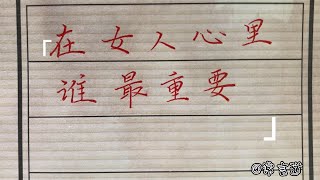 「在女人心里
谁最重要
」